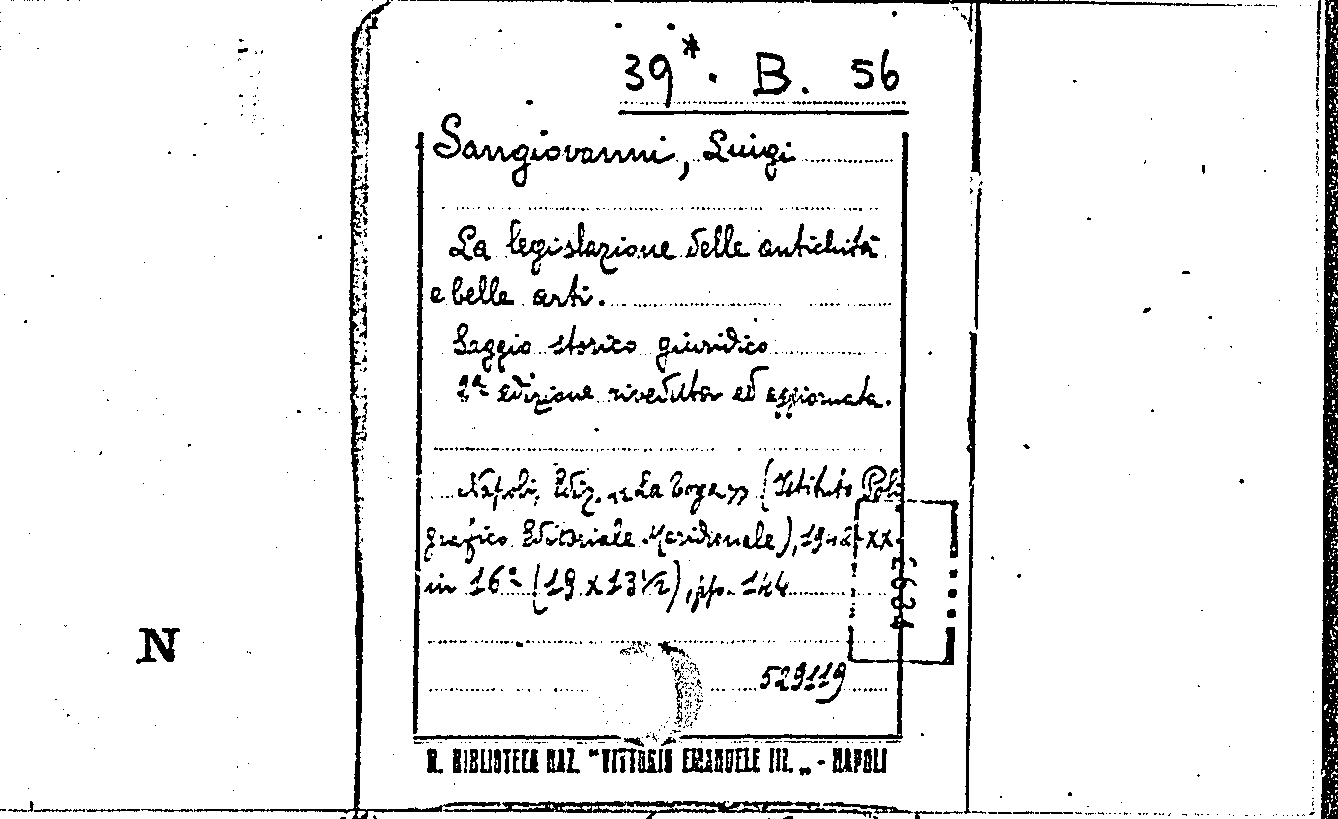 39*. B. 56
Sangiovanni, Luigi
La legislazione delle antichità
e belle arti.
Saggio storico giuridico
2ª edizione riveduta ed aggiornata.
Napoli, Ediz. «La Toga» (Istituto Poli
grafico Editoriale Meridionale), 1942-XX.
in 16º (19 x 13 1/2), pp. 144
529119
N
R. BIBLIOTECA NAZ. "VITTORIO EMANUELE III. „ - NAPOLI